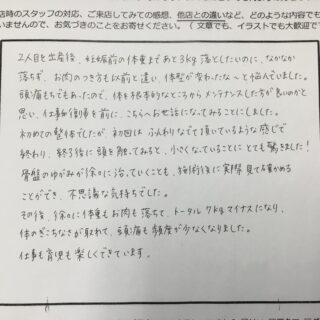 店時のスタッフの対応、ご来店してみての感想、他店との違いなど、どのような内容でも
いませんので、お気づきのことをお寄せください。（文章でも、イラストでも大歓迎で
2人目を出産後、妊娠前の体重まであと3kg落としたいのに、なかなか
落ちず、お肉のつき方も以前と違い、体型が変わったな〜と悩んでいました。
頭痛もちでもあったので、体を根本的なところからメンテナンスした方が良いのかと
思い、仕事復帰を前に、こちらへお世話になってみることにしました。
初めての整体でしたが、初回は ふんわりなでて頂いているような感じで
終わり、終了後に頭を触ってみると、小さくなっていることにとても驚きました！
骨盤のゆがみが徐々に治っていくことも、施術後に実際見て確かめる
ことができ、不思議な気持ちでした。
その後、徐々に体重もお肉も落ちて、トータル7kgマイナスになり、
体のぎこちなさが取れて、頭痛も頻度が少なくなりました。
仕事も育児も楽しくできています。